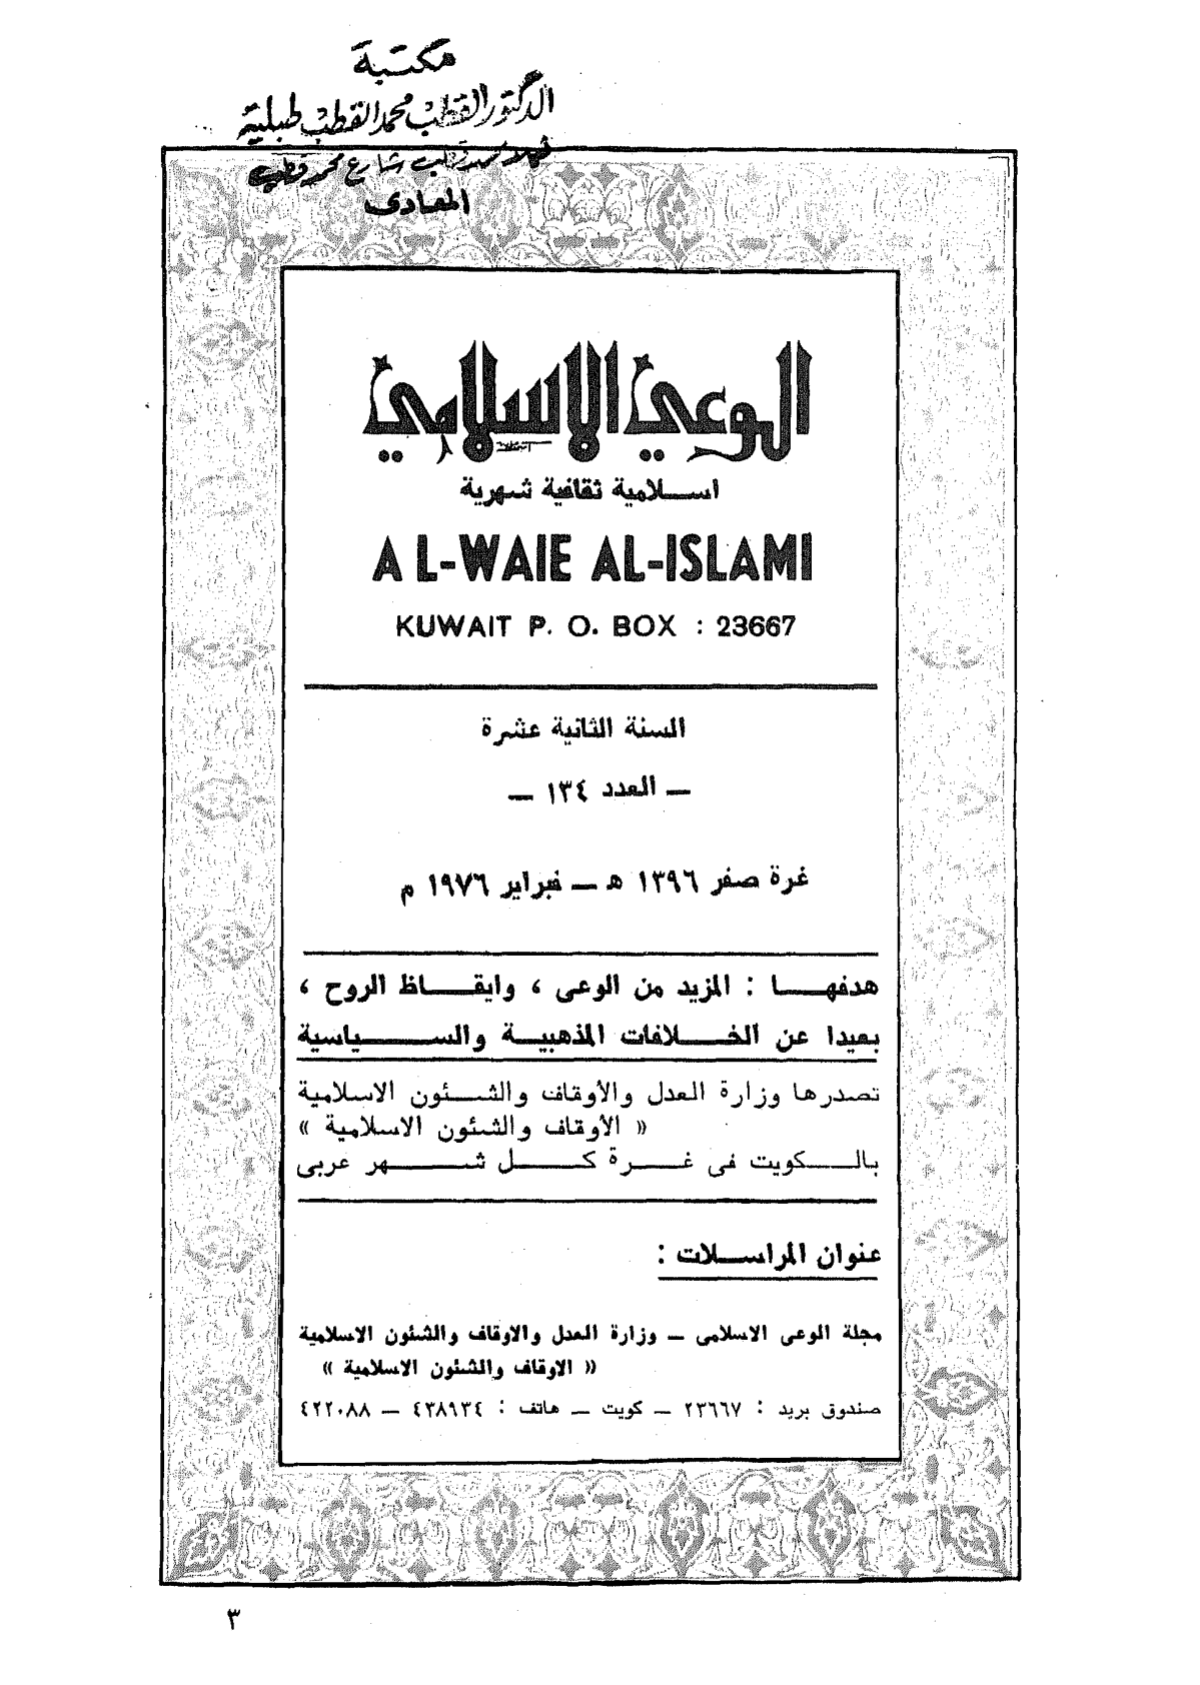 مكتبة
الدكتور القطب محمد القطب طبلية
شارع محمد قطب
المعادى
الوعي الاسلامي
اســـلامية ثقافية شهرية
AL-WAIE AL-ISLAMI
KUWAIT P. O. BOX : 23667
السنة الثانية عشرة
— العدد ١٣٤ —
غرة صفر ١٣٩٦ هـ — فبراير ١٩٧٦ م
هدفهـــا : المزيد من الوعى ، وايقـــاظ الروح ،
بعيدا عن الخـــلافات المذهبيـــة والســـياسية
تصدرها وزارة العدل والأوقاف والشـــئون الاسلامية
« الأوقاف والشئون الاسلامية »
بالـــكويت فى غـــرة كـــل شـــهر عربى
عنوان المراســـلات :
مجلة الوعى الاسلامى — وزارة العدل والاوقاف والشئون الاسلامية
« الاوقاف والشئون الاسلامية »
صندوق بريد : ٢٣٦٦٧ — كويت — هاتف : ٤٣٨٩٣٤ — ٤٢٢٠٨٨
٣